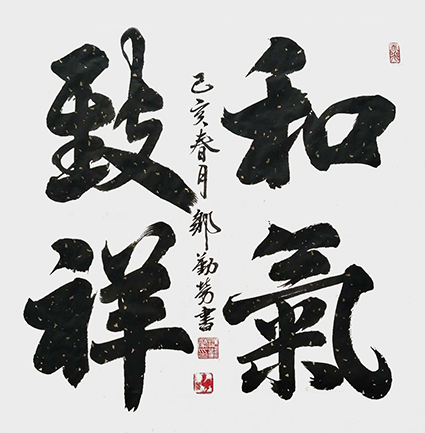 和氣
致祥
己亥春月鄒勤勞書